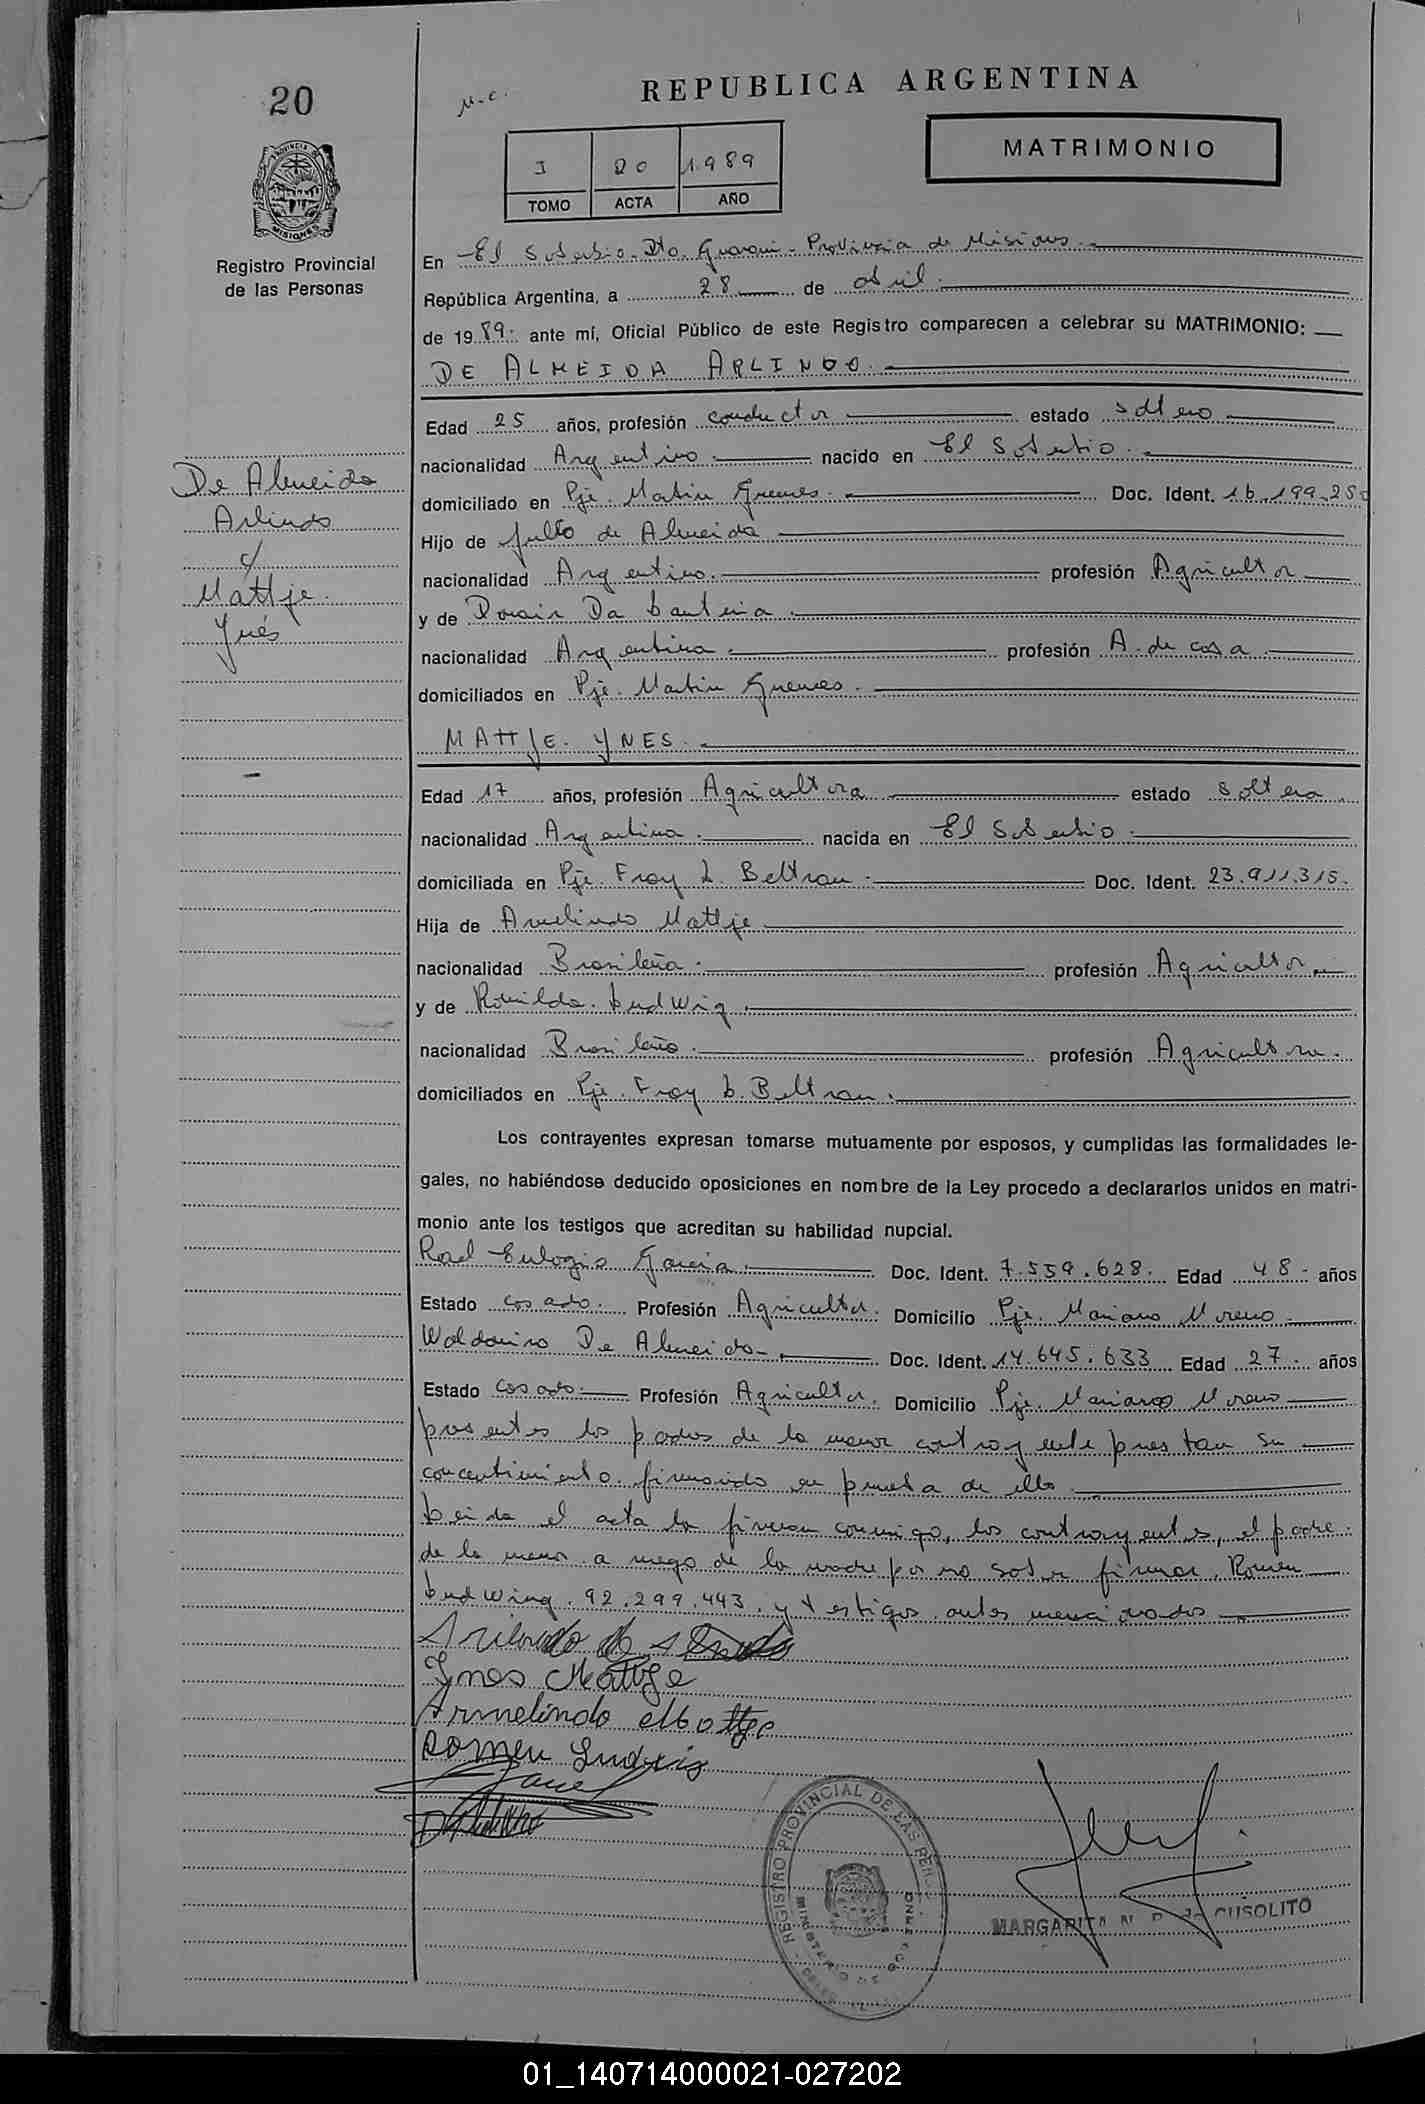 20
REPUBLICA ARGENTINA
MATRIMONIO
I 20 1989
TOMO ACTA AÑO
PROVINCIA DE
MISIONES
Registro Provincial
de las Personas
En El Soberbio. Dto. Guarani - Provincia de Misiones.
República Argentina, a 28 de abril.
de 1989. ante mí, Oficial Público de este Registro comparecen a celebrar su MATRIMONIO:
DE ALMEIDA ARLINDO.
Edad 25 años, profesión conductor estado soltero
nacionalidad Argentino. nacido en El Soberbio.
domiciliado en Pje. Martin Guemes. Doc. Ident. 16.199.250
Hijo de Julio de Almeida
nacionalidad Argentino. profesión Agricultor
y de Da
nacionalidad Argentina. profesión A. de casa.
domiciliados en Pje. Martin Guemes.
MATTJE. YNES.
De Almeida
Arlindo
c/
Mattje.
Ynés
Edad 17 años, profesión Agricultora estado soltera.
nacionalidad Argentina. nacida en El Soberbio.
domiciliada en Pje. Fray L. Beltran. Doc. Ident. 23.911.315.
Hija de Armelindo Mattje
nacionalidad Brasileña. profesión Agricultor
y de Romilda. Ludwig.
nacionalidad Brasileña. profesión Agricultora.
domiciliados en Pje. Fray L. Beltran.
Los contrayentes expresan tomarse mutuamente por esposos, y cumplidas las formalidades le-
gales, no habiéndose deducido oposiciones en nombre de la Ley procedo a declararlos unidos en matri-
monio ante los testigos que acreditan su habilidad nupcial.
Raul Eulogio Garcia. Doc. Ident. 7.559.628. Edad 48 - años
Estado casado. Profesión Agricultor. Domicilio Pje. Mariano Moreno.
Waldomiro De Almeida. Doc. Ident. 14.645.633 Edad 27. años
Estado casado. Profesión Agricultor. Domicilio Pje. Mariano Moreno
presentes los padres de la menor contrayente prestan su
concentimiento. firmando en prueba de ello.
Leida el acta la firman conmigo, los contrayentes, el padre.
de la menor. a ruego de la madre por no saber firmar. Romeu
Ludwing. 92.299.443. y testigos antes mencionados
Ynes Mattje
Armelindo Mattje
Romeu Ludwig
REGISTRO PROVINCIAL DE LAS PERS
MINISTERIO DE GOBIERNO
MARGARITA CUSOLITO
01_140714000021-027202